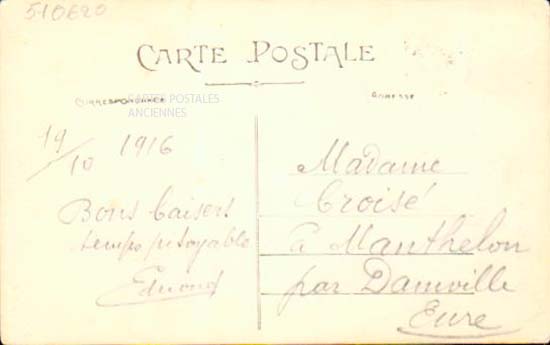 510620
CARTE POSTALE
CORRESPONDANCE
CARTES POSTALES
ANCIENNES
ADRESSE
19/10 1916
Bons baisers
temps pitoyable
Edmond
Madame
Croisé
à Manthelon
par Damville
Eure